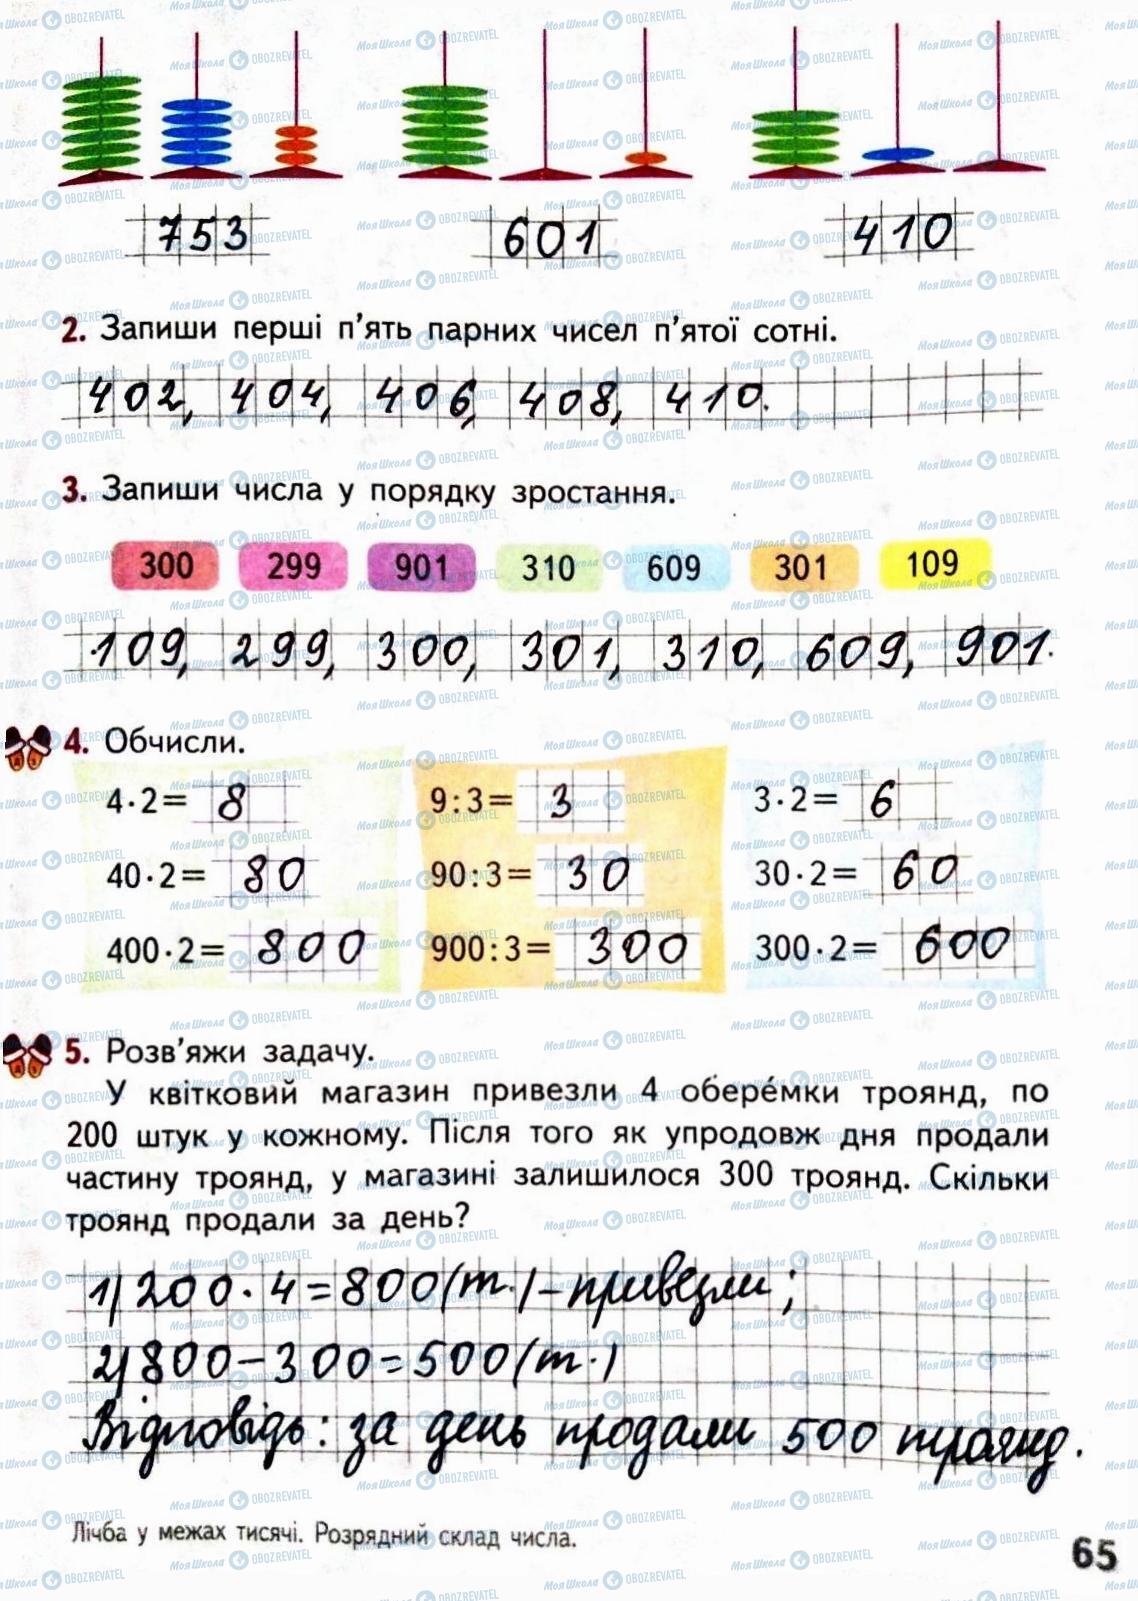 753 601 410
2. Запиши перші п'ять парних чисел п'ятої сотні.
402, 404, 406, 408, 410.
3. Запиши числа у порядку зростання.
300 299 901 310 609 301 109
109, 299, 300, 301, 310, 609, 901.
4. Обчисли.
4·2= 8 9:3= 3 3·2= 6
40·2= 80 90:3= 30 30·2= 60
400·2= 800 900:3= 300 300·2= 600
5. Розв'яжи задачу.
У квітковий магазин привезли 4 обере́мки троянд, по
200 штук у кожному. Після того як упродовж дня продали
частину троянд, у магазині залишилося 300 троянд. Скільки
троянд продали за день?
1) 200·4=800(т.) – привезли;
2) 800–300=500(т.)
Відповідь: за день продали 500 троянд.
Лічба у межах тисячі. Розрядний склад числа.
65
МояШкола OBOZREVATEL